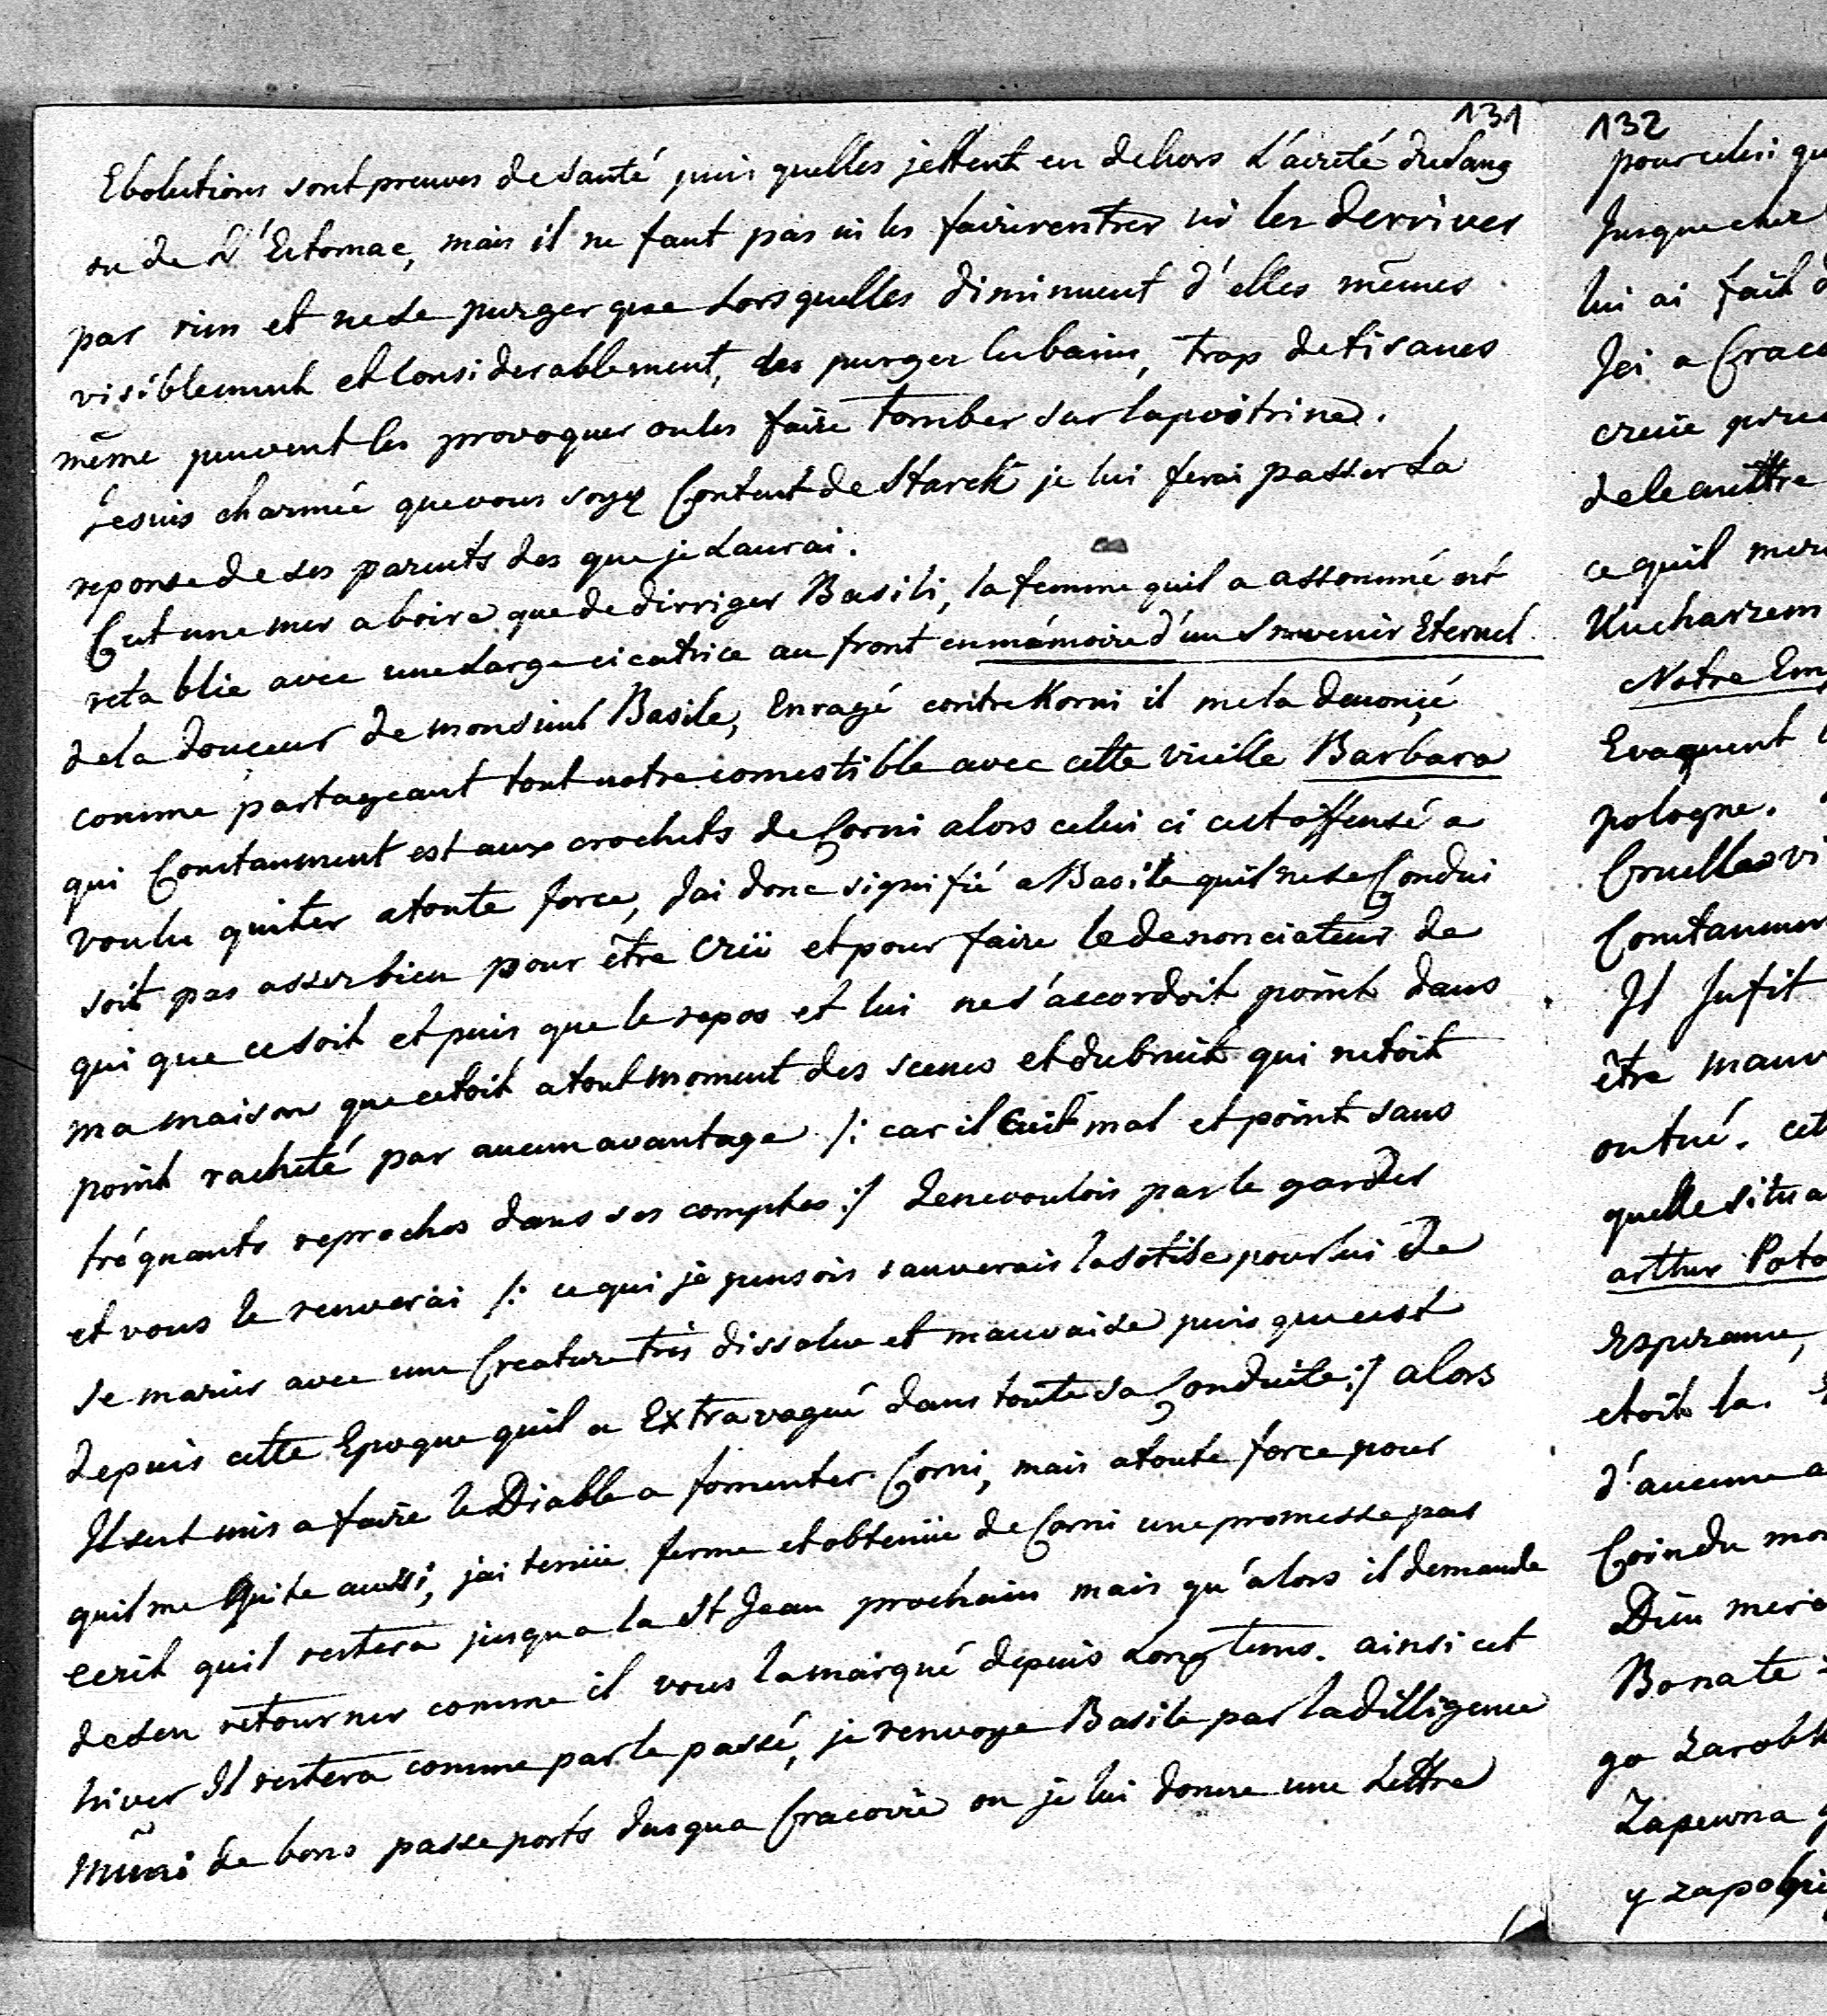 131
Ebolutions sont preuves de santé puis quelles jettent en dehors L'acreté du sang
ou de L'Estomac, mais il ne faut pas ni les faire rentrer ni les derriver
par rien et ne se purger que Lors quelles diminuent d'elles mêmes
visiblement et Considerablement, les purger les bains, trop de tisanes
même peuvent les provoquer ou les faire tomber sur la poitrine.
Je suis charmée que vous soyez Content de Starck je lui ferai passer La
reponse de ses parents des que je Laurai.
C'est une mer a boire que de dirriger Basili, la femme quil a assommé est
retablie avec une Large cicatrice au front en mémoire d'un Souvenir Eternel
de la douceur de monsieur Basile, Enragé contre Korni il me la denonçé
comme partageant tout notre comestible avec cette vieille Barbara
qui Constanment est aux crochets de Corni alors celui ci c'est offensé a
voulu quiter a toute force, Jai donc signifié a Basile quil ne se Condui
soit pas assez bien pour être crü et pour faire le denonciateur de
qui que ce soit et puis que le repos et lui ne s'accordoit point dans
ma maison que cetoit a tout moment des scenes et du bruit qui netoit
point racheté par aucun avantage /: car il Cuit mal et point sans
fréquants reproches dans ses comptes :/ Je ne voulois pas le garder
et vous le renverai /: ce qui je pensois sauverais la sotise pour lui de
se marier avec une Creature très dissolue et mauvaise puis que cest
depuis cette Epoque quil a Extravagué dans toute sa Conduite :/ alors
Il sest mis a faire le Diable a fomenter Corni, mais a toute force pour
quil me Quite aussi, jai tenüe ferme et obtenüe de Corni une promesse par
ecrit quil restera jusqua la St Jean prochain mais qu'alors il demande
de sen retourner comme il vous la marqué depuis Longtems. ainsi cet
hiver Il restera comme par le passé, je renvoye Basile par la dilligence
Muni de bons passe ports Jusqua Cracovie ou je lui donne une Lettre
132
pour celui
Jusque chez
lui ai fait
Ici a
creüe
de le mettre
ce quil
Kucharzem
Notre
Evaquent
pologne.
Cruelles
Constanment
Il sufit
être
ou tué.
quelle
arthur
Esperance,
etoit la.
d'aucune
Coin du
Dieu
Bonate
go
Zapewna
y